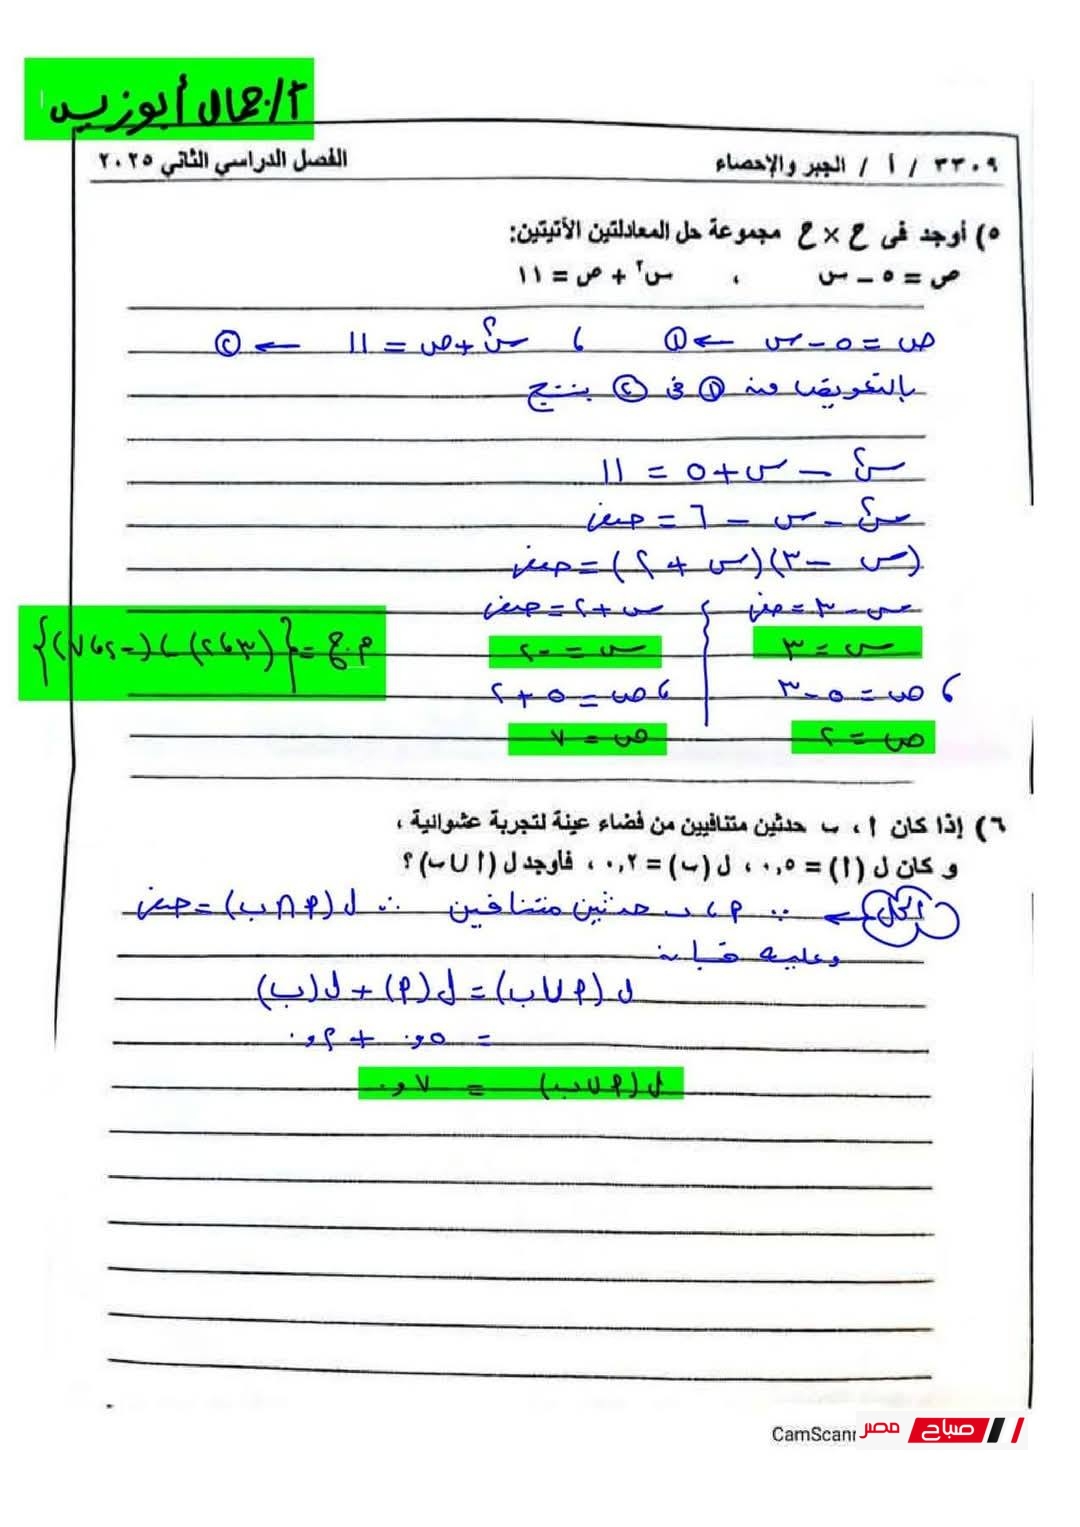 أ/جمال أبوزيد
٣٣٠٩ / أ / الجبر والإحصاء الفصل الدراسي الثاني ٢٠٢٥
٥) أوجد فى ح × ح مجموعة حل المعادلتين الأتيتين:
ص = ٥ - س ، س٢ + ص = ١١
ص = ٥ - س ← ① ، س٢ + ص = ١١ ← ②
بالتعويض من ① فى ② ينتج
س٢ - س + ٥ = ١١
س٢ - س - ٦ = صفر
(س - ٣)(س + ٢) = صفر
س - ٣ = صفر س + ٢ = صفر
س = ٣ س = -٢ م.ح = {(٣، ٢) ، (-٢، ٧)}
، ص = ٥ - ٣ ، ص = ٥ + ٢
ص = ٢ ص = ٧
٦) إذا كان أ ، ب حدثين متنافيين من فضاء عينة لتجربة عشوائية ،
و كان ل (أ) = ٠,٥ ، ل (ب) = ٠,٢ ، فأوجد ل (أ ∪ ب) ؟
الحل ← ∵ أ ، ب حدثين متنافين ∴ ل (أ ∩ ب) = صفر
وعليه فإنه
ل (أ ∪ ب) = ل (أ) + ل (ب)
= ٠,٥ + ٠,٢
ل (أ ∪ ب) = ٠,٧
CamScann
صباح مصر